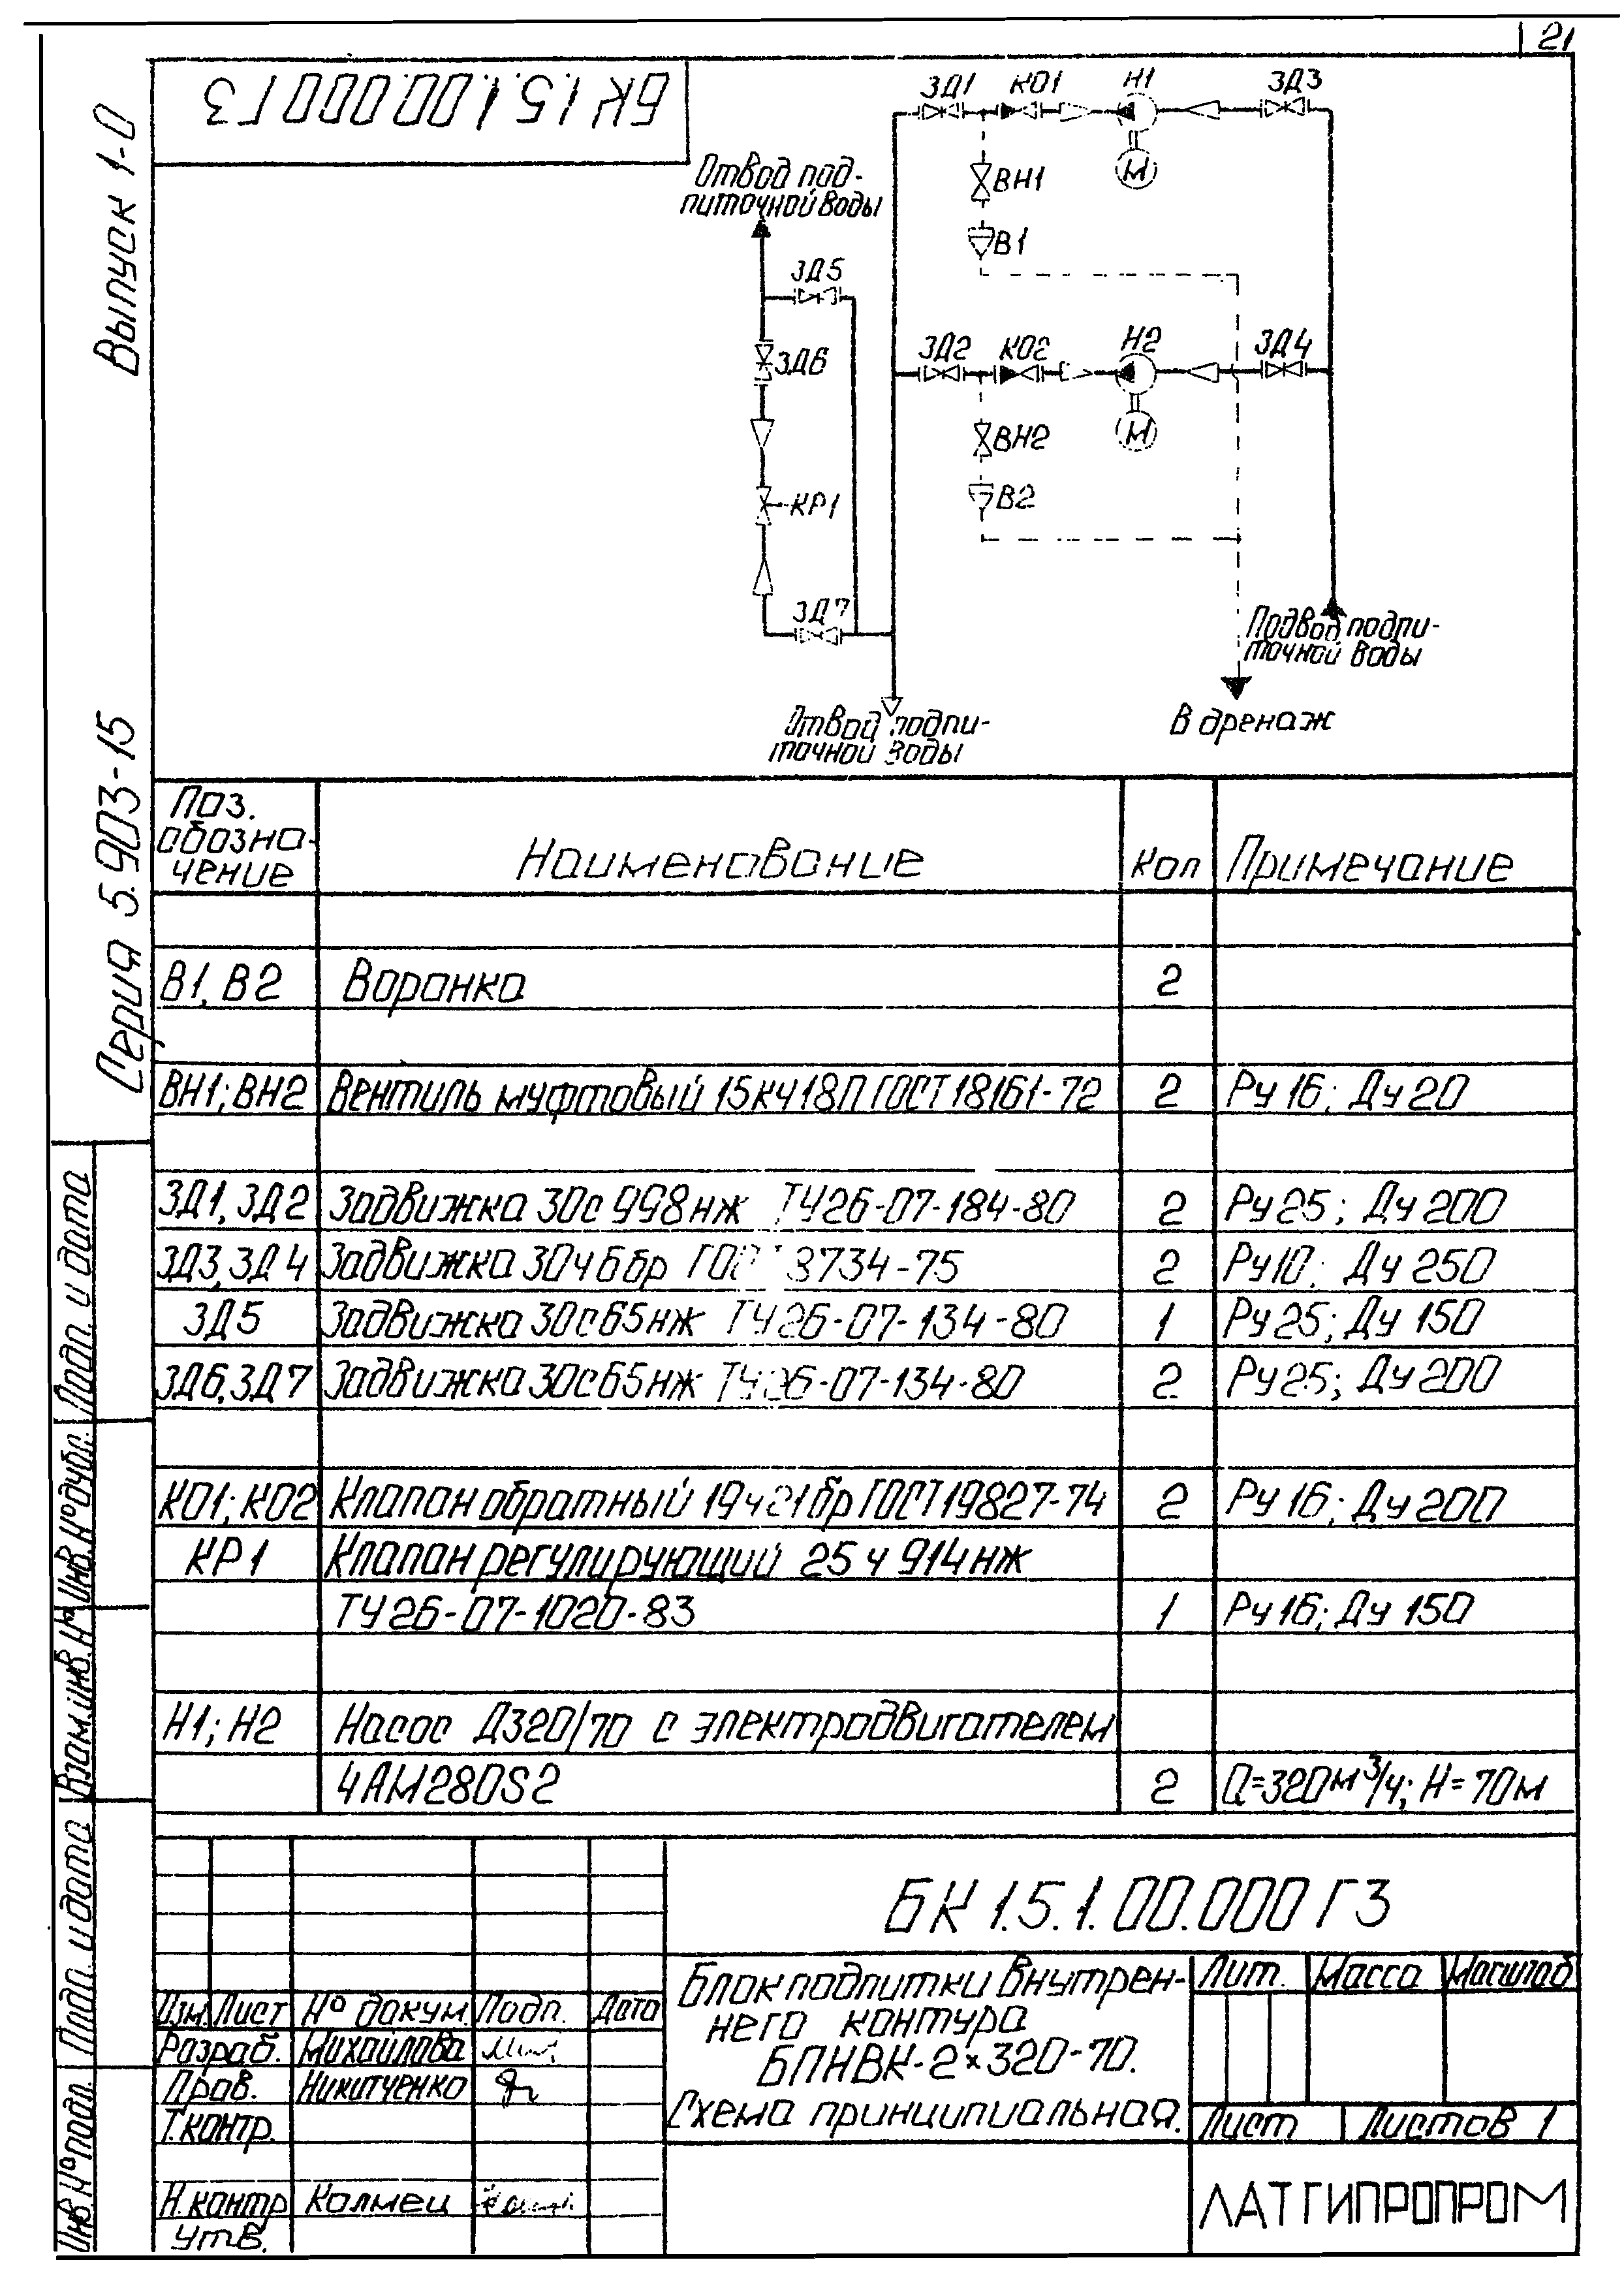 21
БК 1.5.1.00.000 ГЗ
Выпуск 1-0
Серия 5.903-15
ЗД1 КО1 Н1 ЗД3
М
ВН1
В1
Отвод под-
питочной воды
ЗД5
ЗД6
КР1
ЗД7
ЗД2 КО2 Н2 ЗД4
М
ВН2
В2
Подвод подпи-
точной воды
Отвод подпи-
точной воды
В дренаж
Поз. обозна-чение Наименование Кол Примечание
В1, В2 Воронка 2
ВН1; ВН2 Вентиль муфтовый 15кч18П ГОСТ 18161-72 2 Ру 16; Ду 20
ЗД1, ЗД2 Задвижка 30с 998нж ТУ26-07-184-80 2 Ру 25; Ду 200
ЗД3, ЗД4 Задвижка 30ч6бр ГОСТ 8734-75 2 Ру10; Ду 250
ЗД5 Задвижка 30с65нж ТУ26-07-134-80 1 Ру25; Ду 150
ЗД6, ЗД7 Задвижка 30с65нж ТУ26-07-134-80 2 Ру25; Ду 200
КО1; КО2 Клапан обратный 19ч21бр ГОСТ 19827-74 2 Ру 16; Ду 200
КР1 Клапан регулирующий 25ч 914нж
ТУ26-07-1020-83 1 Ру16; Ду 150
Н1; Н2 Насос Д320/70 с электродвигателем
4АМ280S2 2 Q=320м³/ч; Н=70м
БК 1.5.1.00.000 ГЗ
Блок подпитки внутрен-
него контура
БПНВК-2×320-70.
Схема принципиальная.
Лит. Масса Масштаб
Лист Листов 1
ЛАТГИПРОПРОМ
Изм. Лист № докум. Подп. Дата
Разраб. Михайлова
Пров. Никитченко
Т.контр.
Н.контр Колмец
Утв.
Подп. и дата
Инв. № дубл.
Взам. инв. №
Подп. и дата
Инв. № подл.